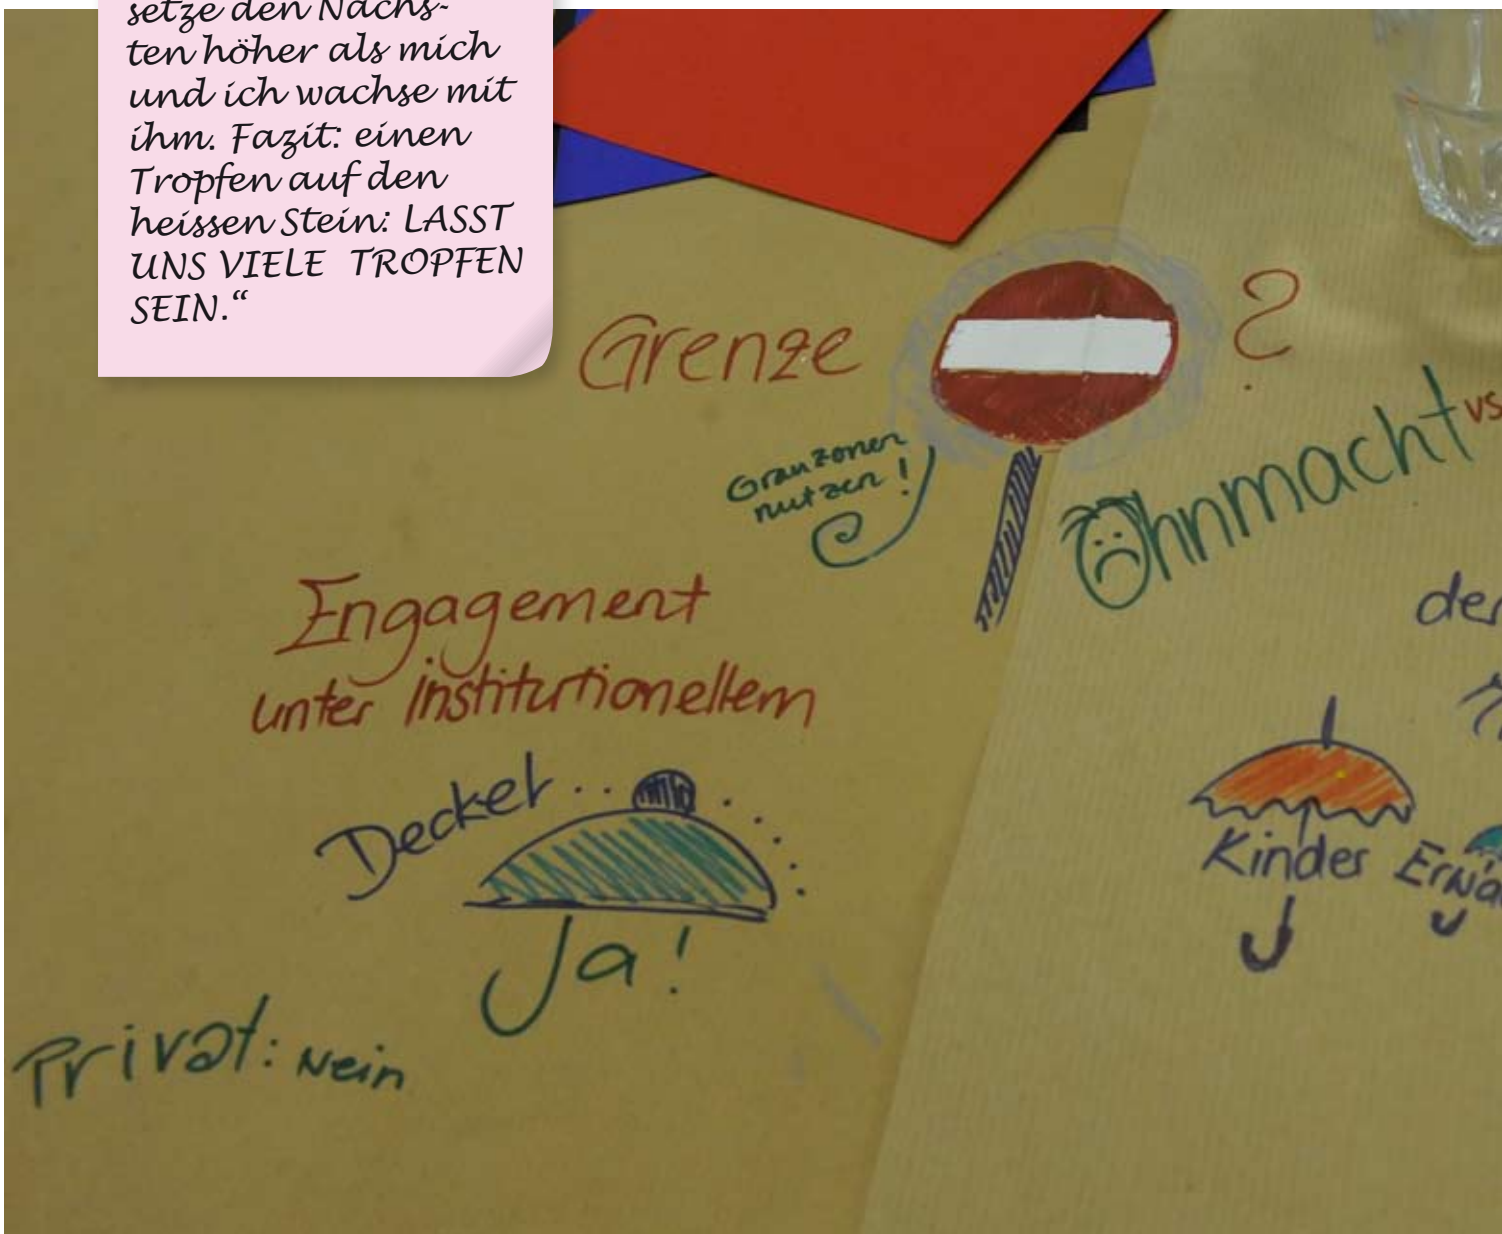 setze den Nächs-
ten höher als mich
und ich wachse mit
ihm. Fazit: einen
Tropfen auf den
heissen Stein: LASST
UNS VIELE TROPFEN
SEIN.“
Grenze ?
Grauzonen
nutzen!
Ohnmacht vs
Engagement
unter institutionellem
Deckel
Ja!
Privat: Nein
der
Kinder